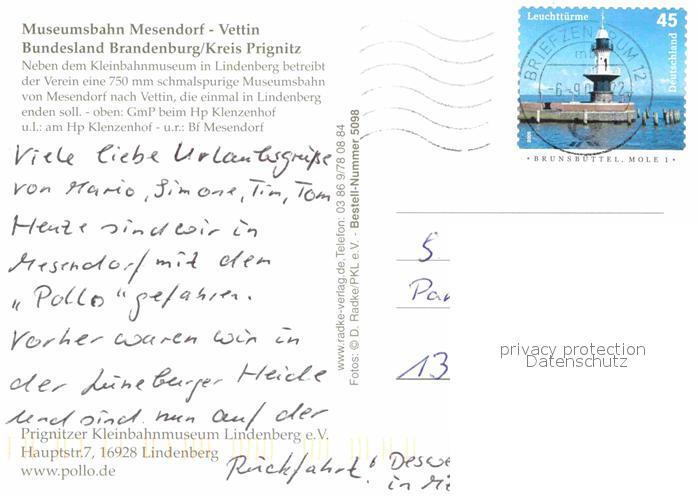 Museumsbahn Mesendorf - Vettin
Bundesland Brandenburg/Kreis Prignitz
Neben dem Kleinbahnmuseum in Lindenberg betreibt
der Verein eine 750 mm schmalspurige Museumsbahn
von Mesendorf nach Vettin, die einmal in Lindenberg
enden soll. - oben: GmP beim Hp Klenzenhof
u.l.: am Hp Klenzenhof - u.r.: Bf Mesendorf
Viele liebe Urlaubsgrüße
von Mario, Simone, Tim, Tom
Heute sind wir in
Mesendorf mit dem
„Pollo" gefahren.
Vorher waren wir in
der Lüneburger Heide
und sind nun auf der
Rückfahrt!
Prignitzer Kleinbahnmuseum Lindenberg e.V.
Hauptstr.7, 16928 Lindenberg
www.pollo.de
www.radke-verlag.de,Telefon: 03 86 9/78 08 84
Fotos: © D. Radke/PKL e.V. - Bestell-Nummer 5098
Leuchttürme
45
Deutschland
BRIEFZENTRUM
• BRUNSBÜTTEL, MOLE 1 •
5
Par
13
privacy protection
Datenschutz
Desw
in